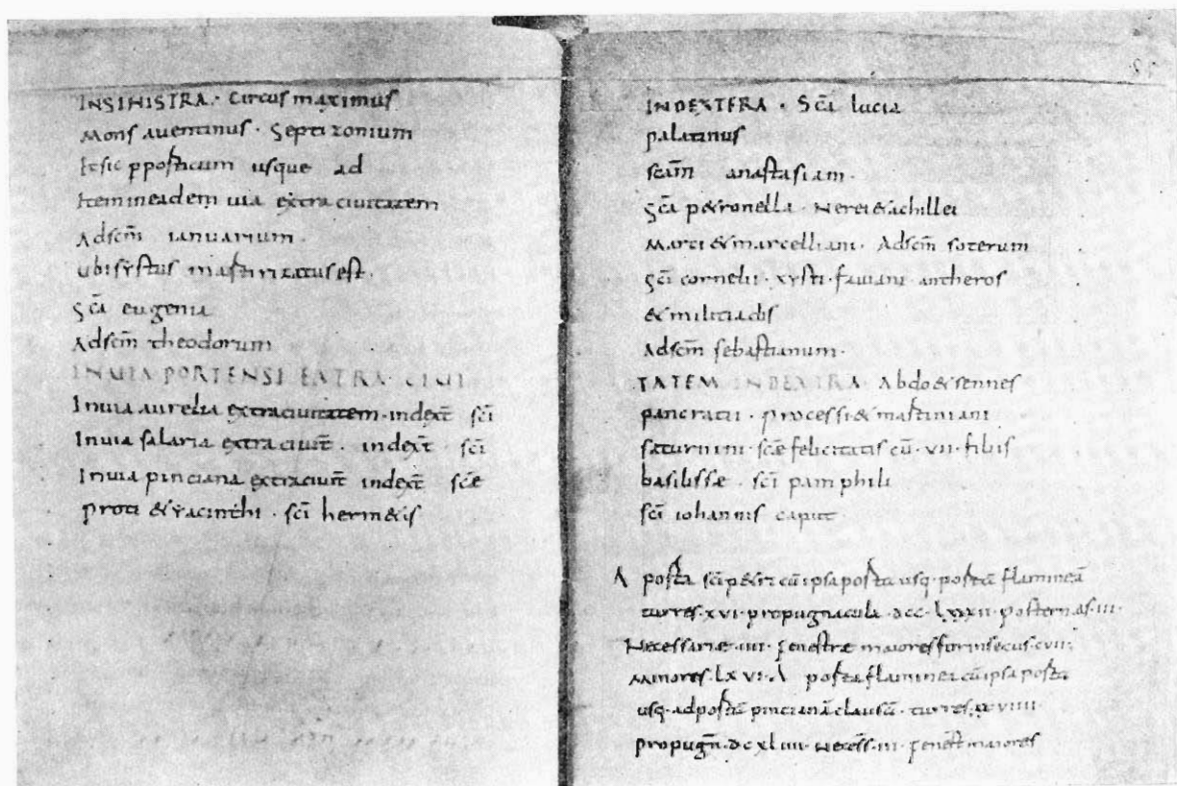 INSINISTRA · Circus maximus
Mons auentinus · Septizonium
Et sic pposticum usque ad
Item in eadem uia extra ciuitatem
Adscm ianuarium ·
ubi systus martirizatus est ·
Sca eugenia
Adscm theodorum
IN UIA PORTENSI EXTRA CIUI
In uia aurelia extra ciuitatem · in dext sci
In uia salaria extra ciuit · in dext · sci
In uia pinciana extra ciuit in dext scae
proti & yacinthi · sci herm&is
INDEXTERA · Sca lucia
palatinus
scam anastasiam ·
Sca p&ronella · Nerei & achillei
Marci & marcelliani · Adscm soterum
Sci cornelii · xysti · fauiani · antheros
& miltiadis
Adscm sebastianum ·
TATEM INDEXTRA · Abdo & sennes
pancratii · processi & martiniani
saturnini · scae felicitatis cu · VII · filiis
basilissae · sci pamphili
sci iohannis caput
A porta sci p&ri cu ipsa porta usq · porta flaminea
turres · XVI · propugnacula · DCC · LXXXII · posternas · III ·
Necessariae · IIII · fenestrae maiores forinsecus · CVII ·
Minores · LXVI · A porta flaminea cu ipsa porta
usq · ad porta pinciana clausa · turres · XXVIIII ·
propugn · DCXLIIII · Necess · III · fenest maiores